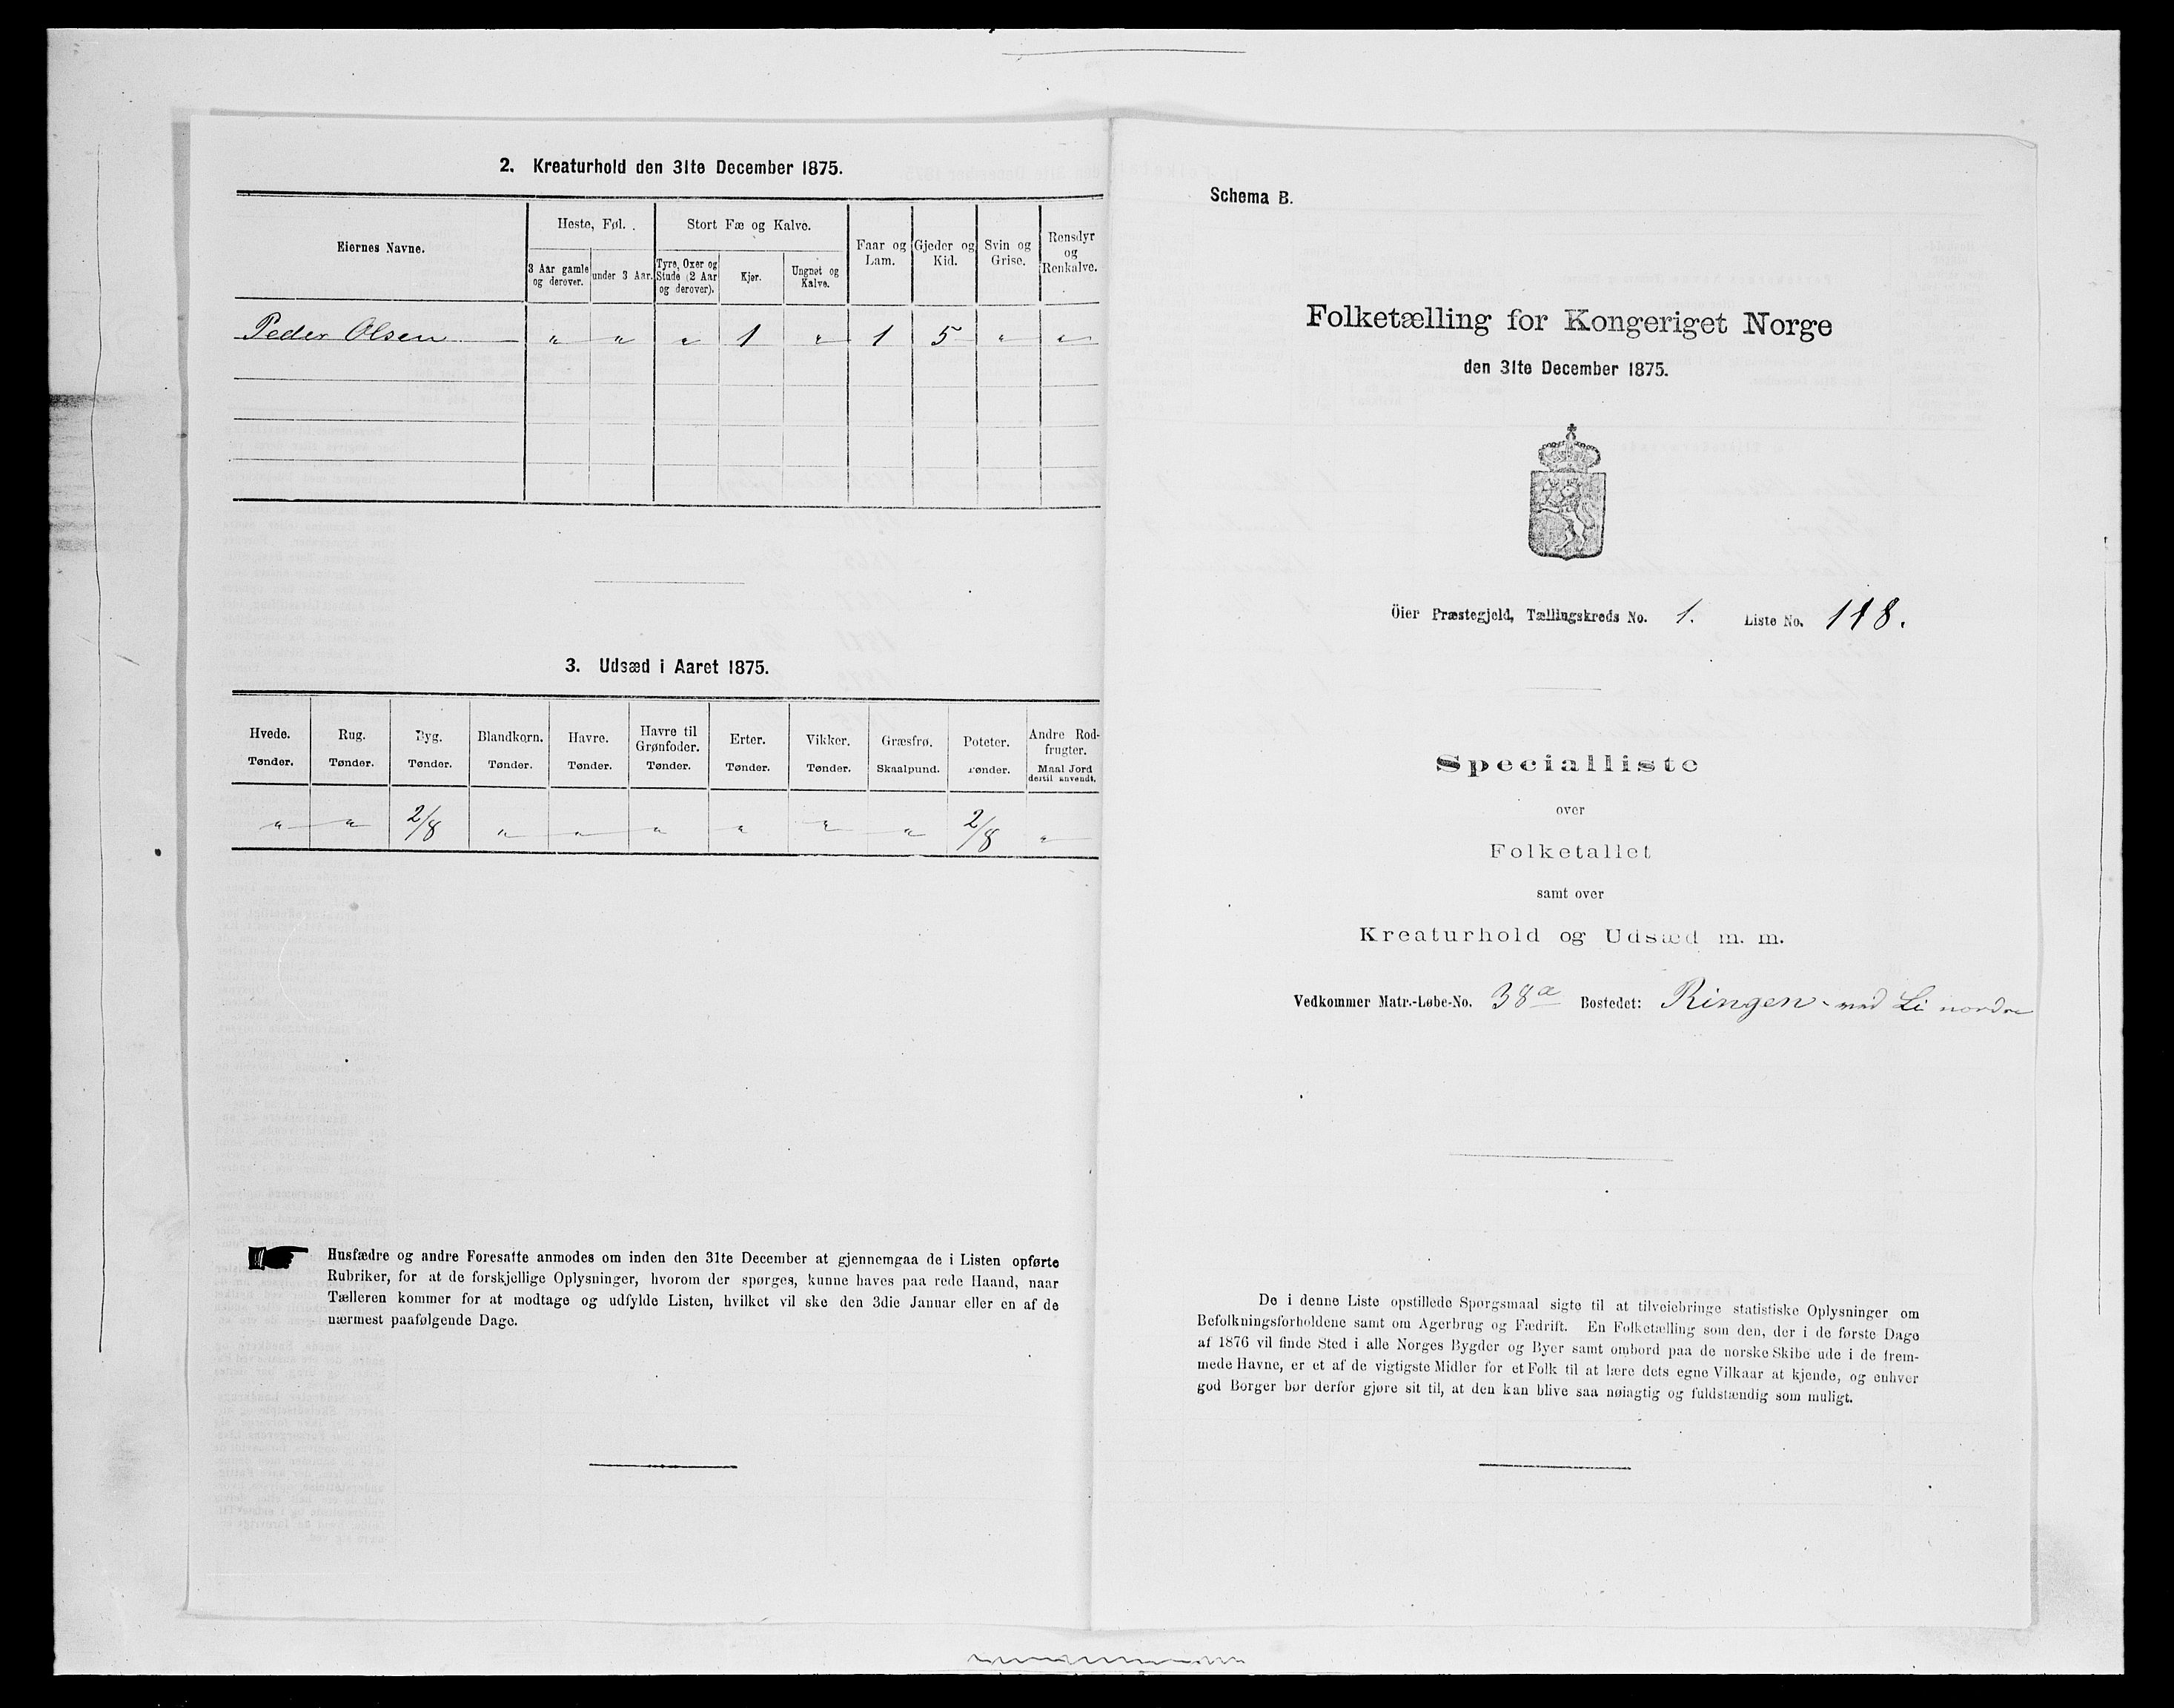 2. Kreaturhold den 31te December 1875.
Eiernes Navne.
Heste, Føl.
Stort Fæ og Kalve.
Faar og Lam.
Gjeder og Kid.
Svin og Grise.
Rensdyr og Renkalve.
3 Aar gamle og derover.
under 3 Aar.
Tyre, Oxer og Stude (2 Aar og derover).
Kjør.
Ungnøt og Kalve.
Peder Olsen " " " 1 " 1 5 " "
3. Udsæd i Aaret 1875.
Hvede. Rug. Byg. Blandkorn. Havre. Havre til Grønfoder. Erter. Vikker. Græsfrø. Poteter. Andre Rodfrugter.
Tønder. Tønder. Tønder. Tønder. Tønder. Tønder. Tønder. Tønder. Skaalpund. Tønder. Maal Jord dertil anvendt.
" " 2/8 " " " " " " 2/8 "
Husfædre og andre Foresatte anmodes om inden den 31te December at gjennemgaa de i Listen opførte
Rubriker, for at de forskjellige Oplysninger, hvorom der spørges, kunne haves paa rede Haand, naar
Tælleren kommer for at modtage og udfylde Listen, hvilket vil ske den 3die Januar eller en af de
nærmest paafølgende Dage.
Schema B.
Folketælling for Kongeriget Norge
den 31te December 1875.
Öier Præstegjeld, Tællingskreds No. 1. Liste No. 118.
Specialliste
over
Folketallet
samt over
Kreaturhold og Udsæd m. m.
Vedkommer Matr.-Løbe-No. 38a Bostedet: Ringen - ved Li nordre
De i denne Liste opstillede Spørgsmaal sigte til at tilveiebringe statistiske Oplysninger om
Befolkningsforholdene samt om Agerbrug og Fædrift. En Folketælling som den, der i de første Dage
af 1876 vil finde Sted i alle Norges Bygder og Byer samt ombord paa de norske Skibe ude i de frem-
mede Havne, er et af de vigtigste Midler for et Folk til at lære dets egne Vilkaar at kjende, og enhver
god Borger bør derfor gjøre sit til, at den kan blive saa nøiagtig og fuldstændig som muligt.